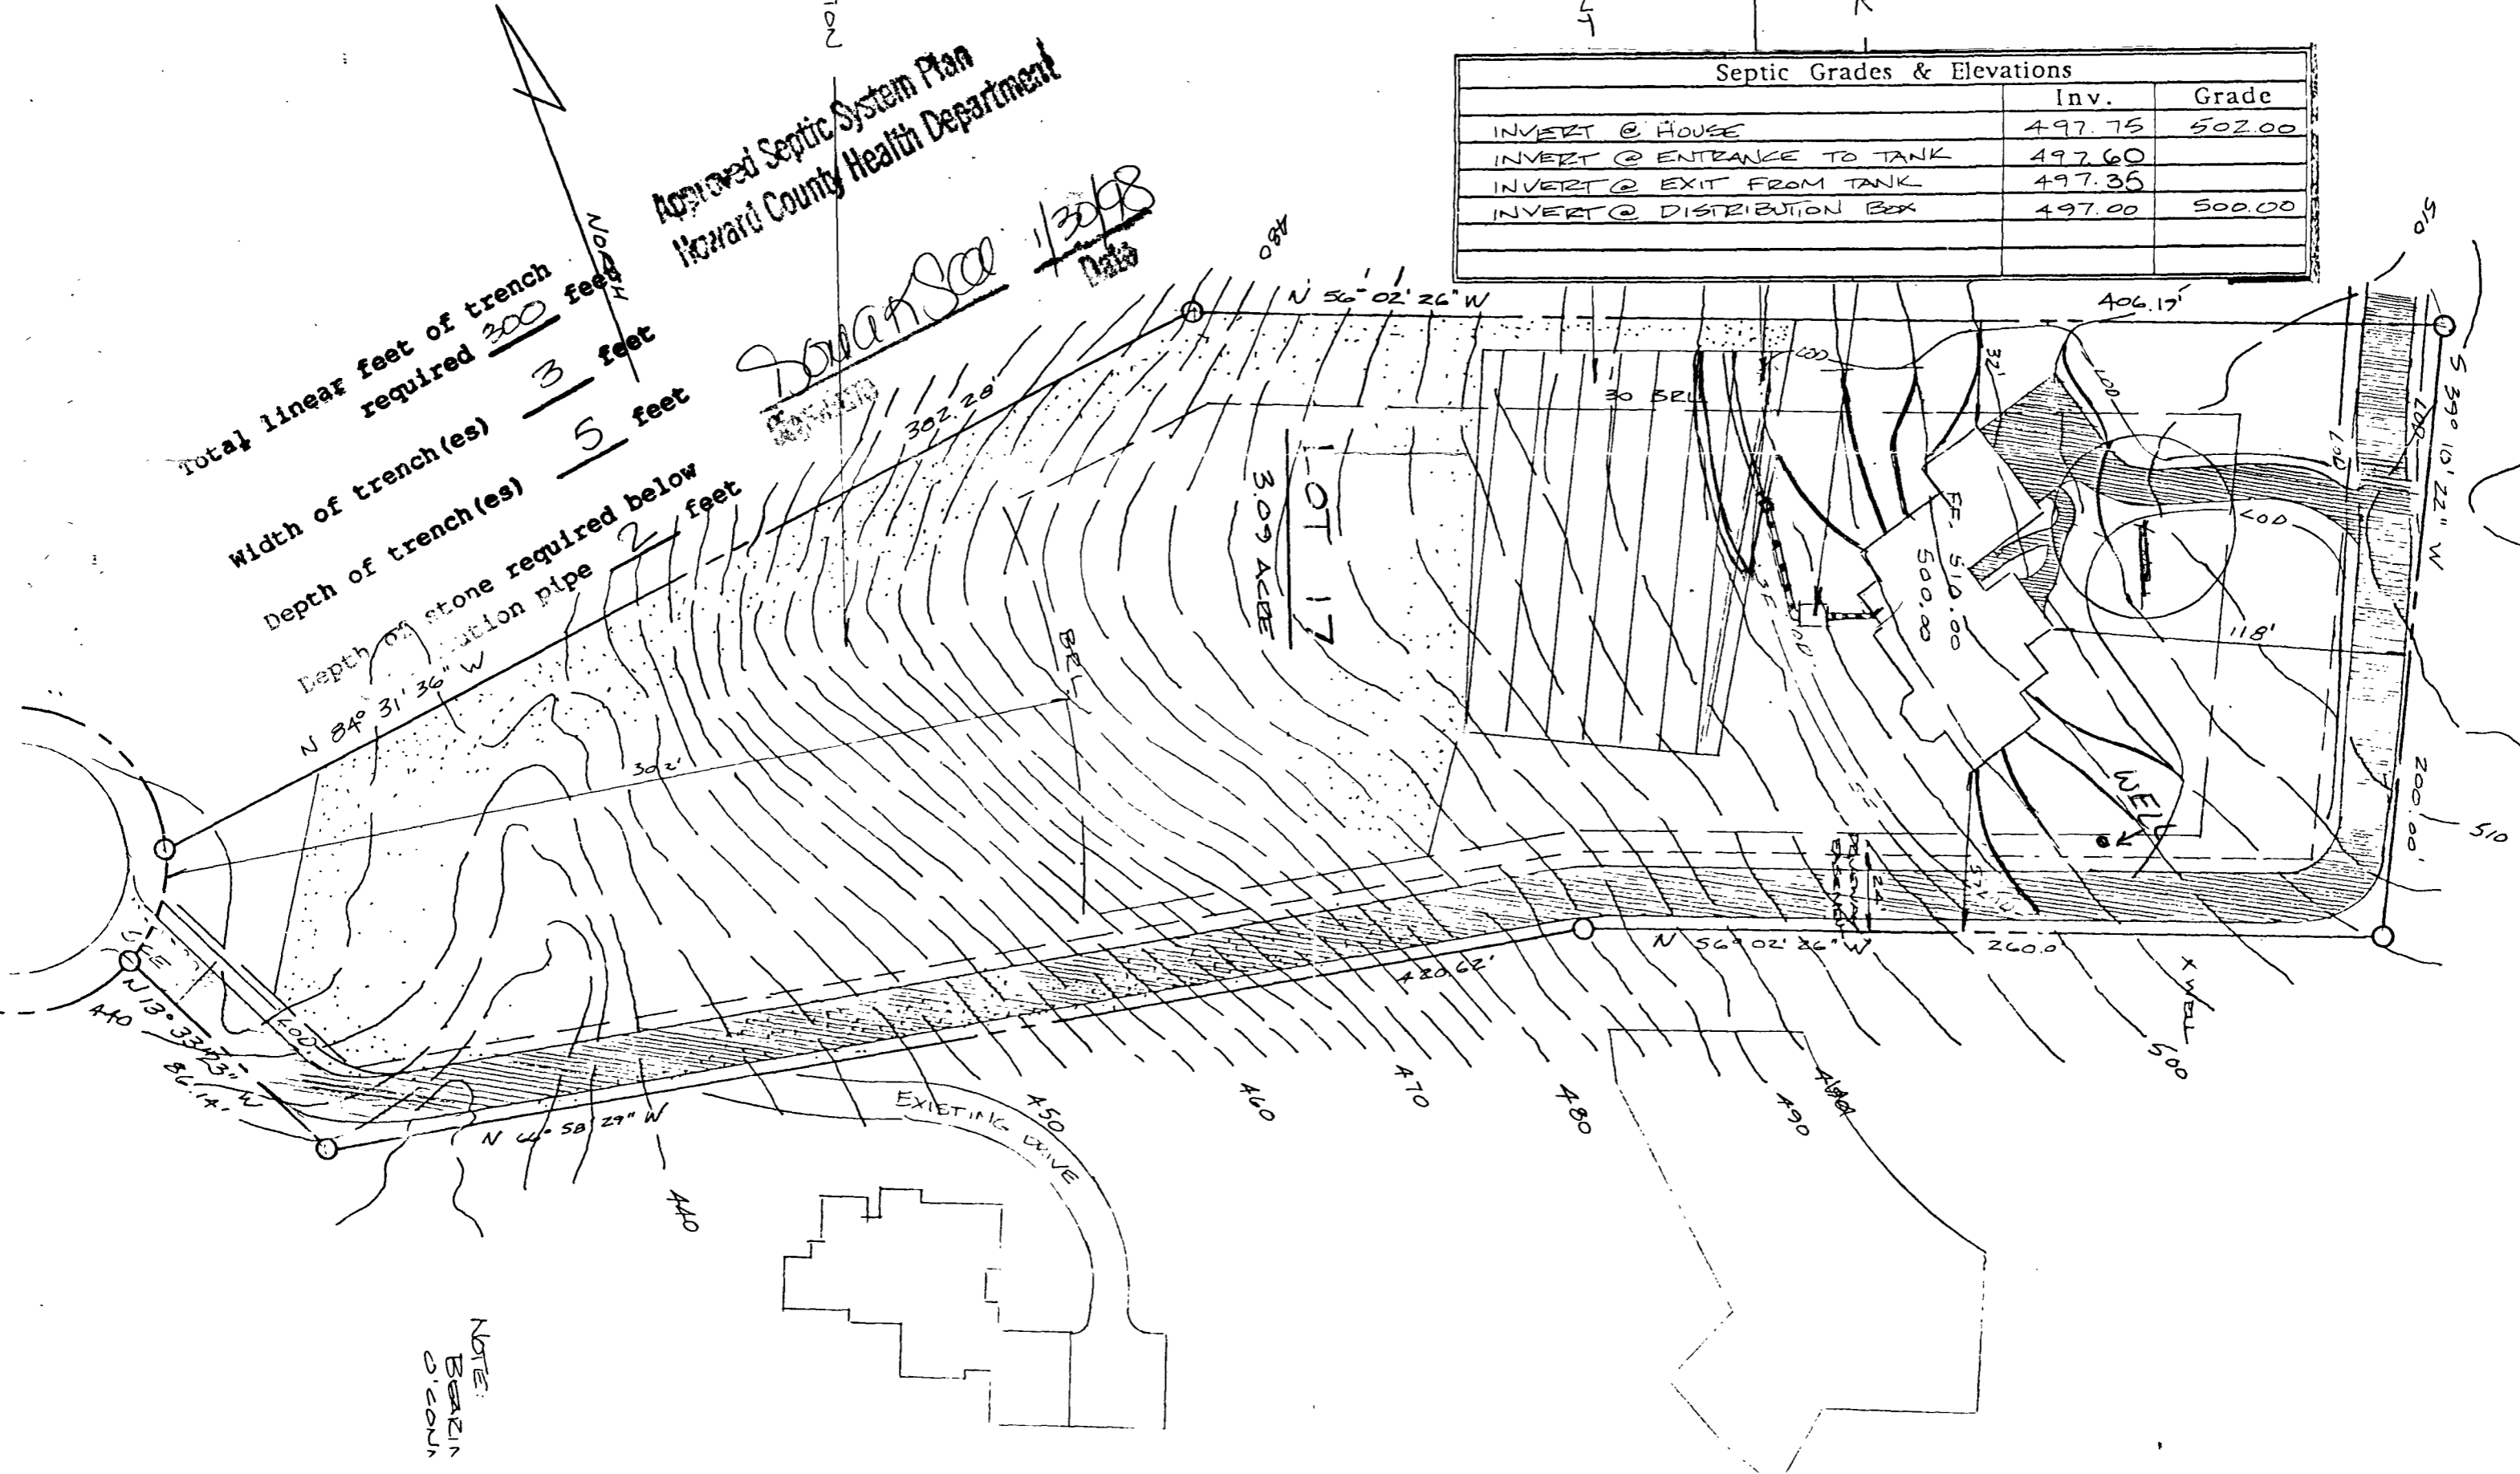 Approved Septic System Plan
Howard County Health Department
1/30/98
Date
NORTH
Total linear feet of trench
required 300 feet
Width of trench(es) 3 feet
Depth of trench(es) 5 feet
Depth of stone required below
pipe 2 feet
Septic Grades & Elevations
Inv. Grade
INVERT @ HOUSE 497.75 502.00
INVERT @ ENTRANCE TO TANK 497.60
INVERT @ EXIT FROM TANK 497.35
INVERT @ DISTRIBUTION BOX 497.00 500.00
480
N 56° 02' 26" W
406.17'
510
S 39° 10' 22" W
200.00'
510
302.28'
N 84° 31' 36" W
LOD
32'
LOD
LOD
LOD
LOD
LOT 17
3.09 ACRE
FF. 510.00
500.00
118'
BRL
302'
WELL
24
N 56° 02' 26" W
260.0
420.62'
X WELL
500
490
480
470
460
450
440
EXISTING DRIVE
N 66° 58' 29" W
LOD
440
86.14'
NOTE: